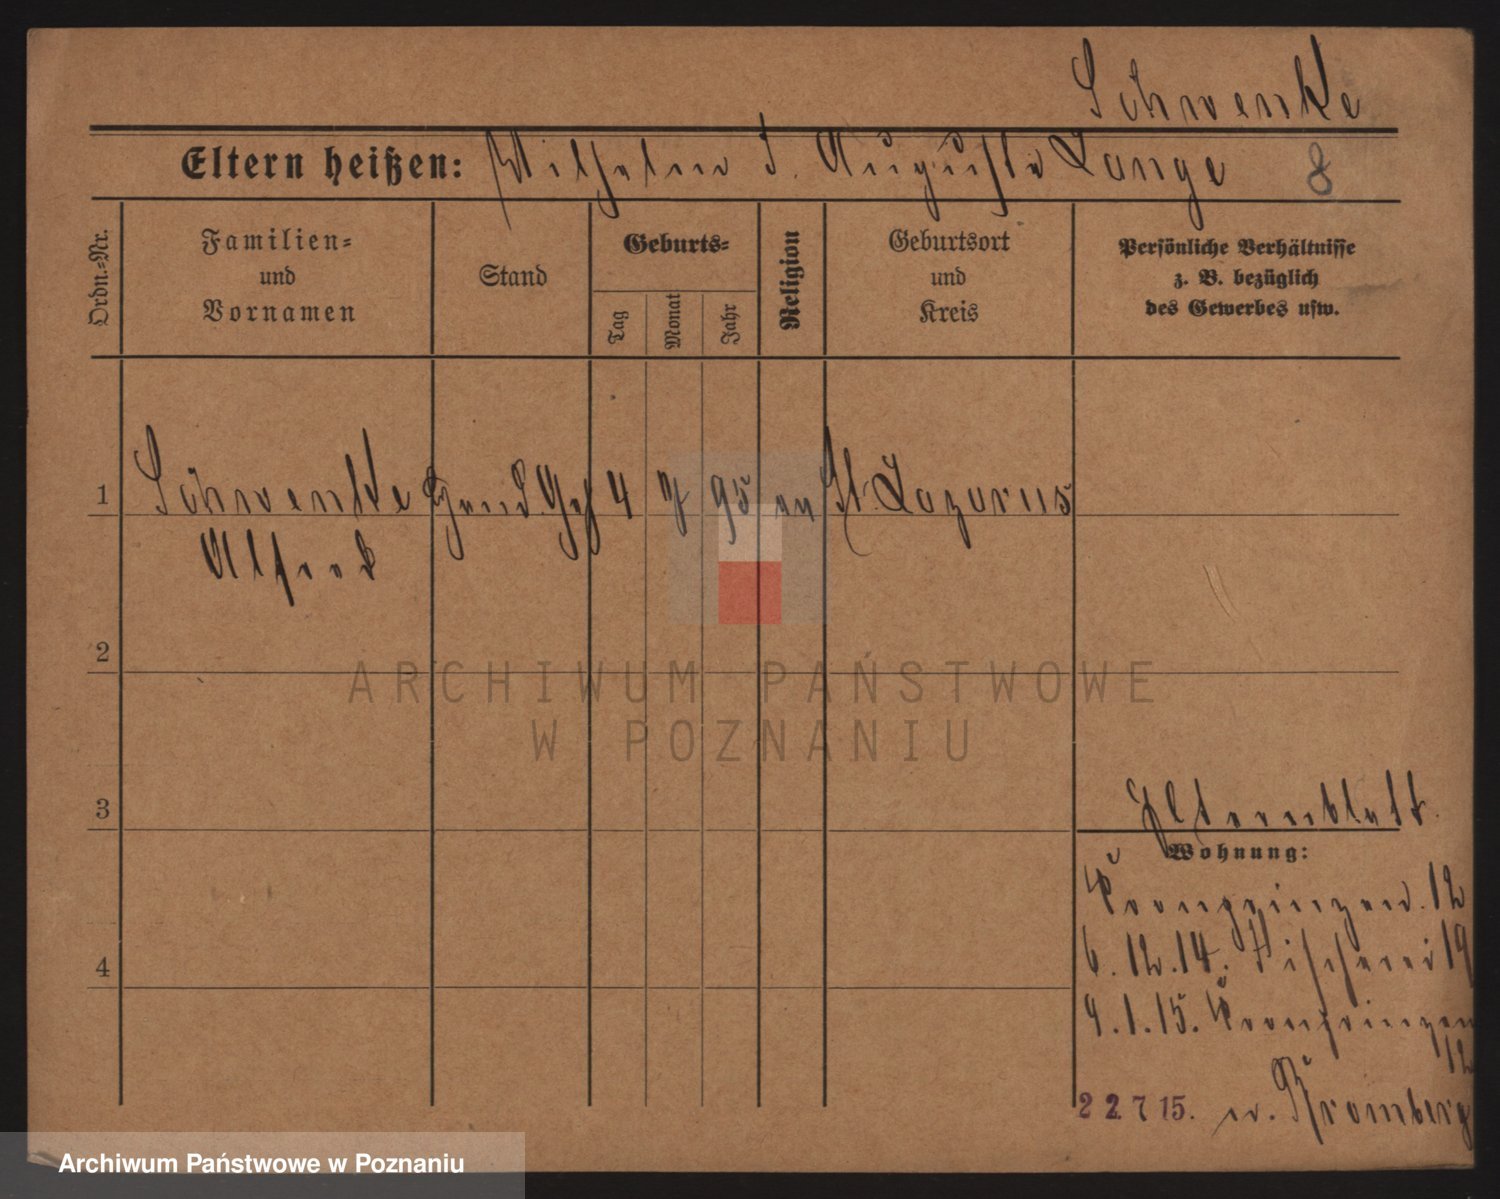 Schwenke
Eltern heißen: Wilhelm u. Auguste Lange 8
Ordn.-Nr.
Familien-
und
Vornamen
Stand
Geburts-
Tag
Monat
Jahr
Religion
Geburtsort
und
Kreis
Persönliche Verhältnisse
z. B. bezüglich
des Gewerbes usw.
1 Schwenke Hand. Geh 4 7 95 ev St. Lazarus
Alfred
2
3
4
Elternblatt.
Wohnung:
Kronprinzen. 12
6.12.14. Fischerei 19
4.1.15. Kronprinzen
12
22 7 15. n. Bromberg
ARCHIWUM PAŃSTWOWE
W POZNANIU
Archiwum Państwowe w Poznaniu